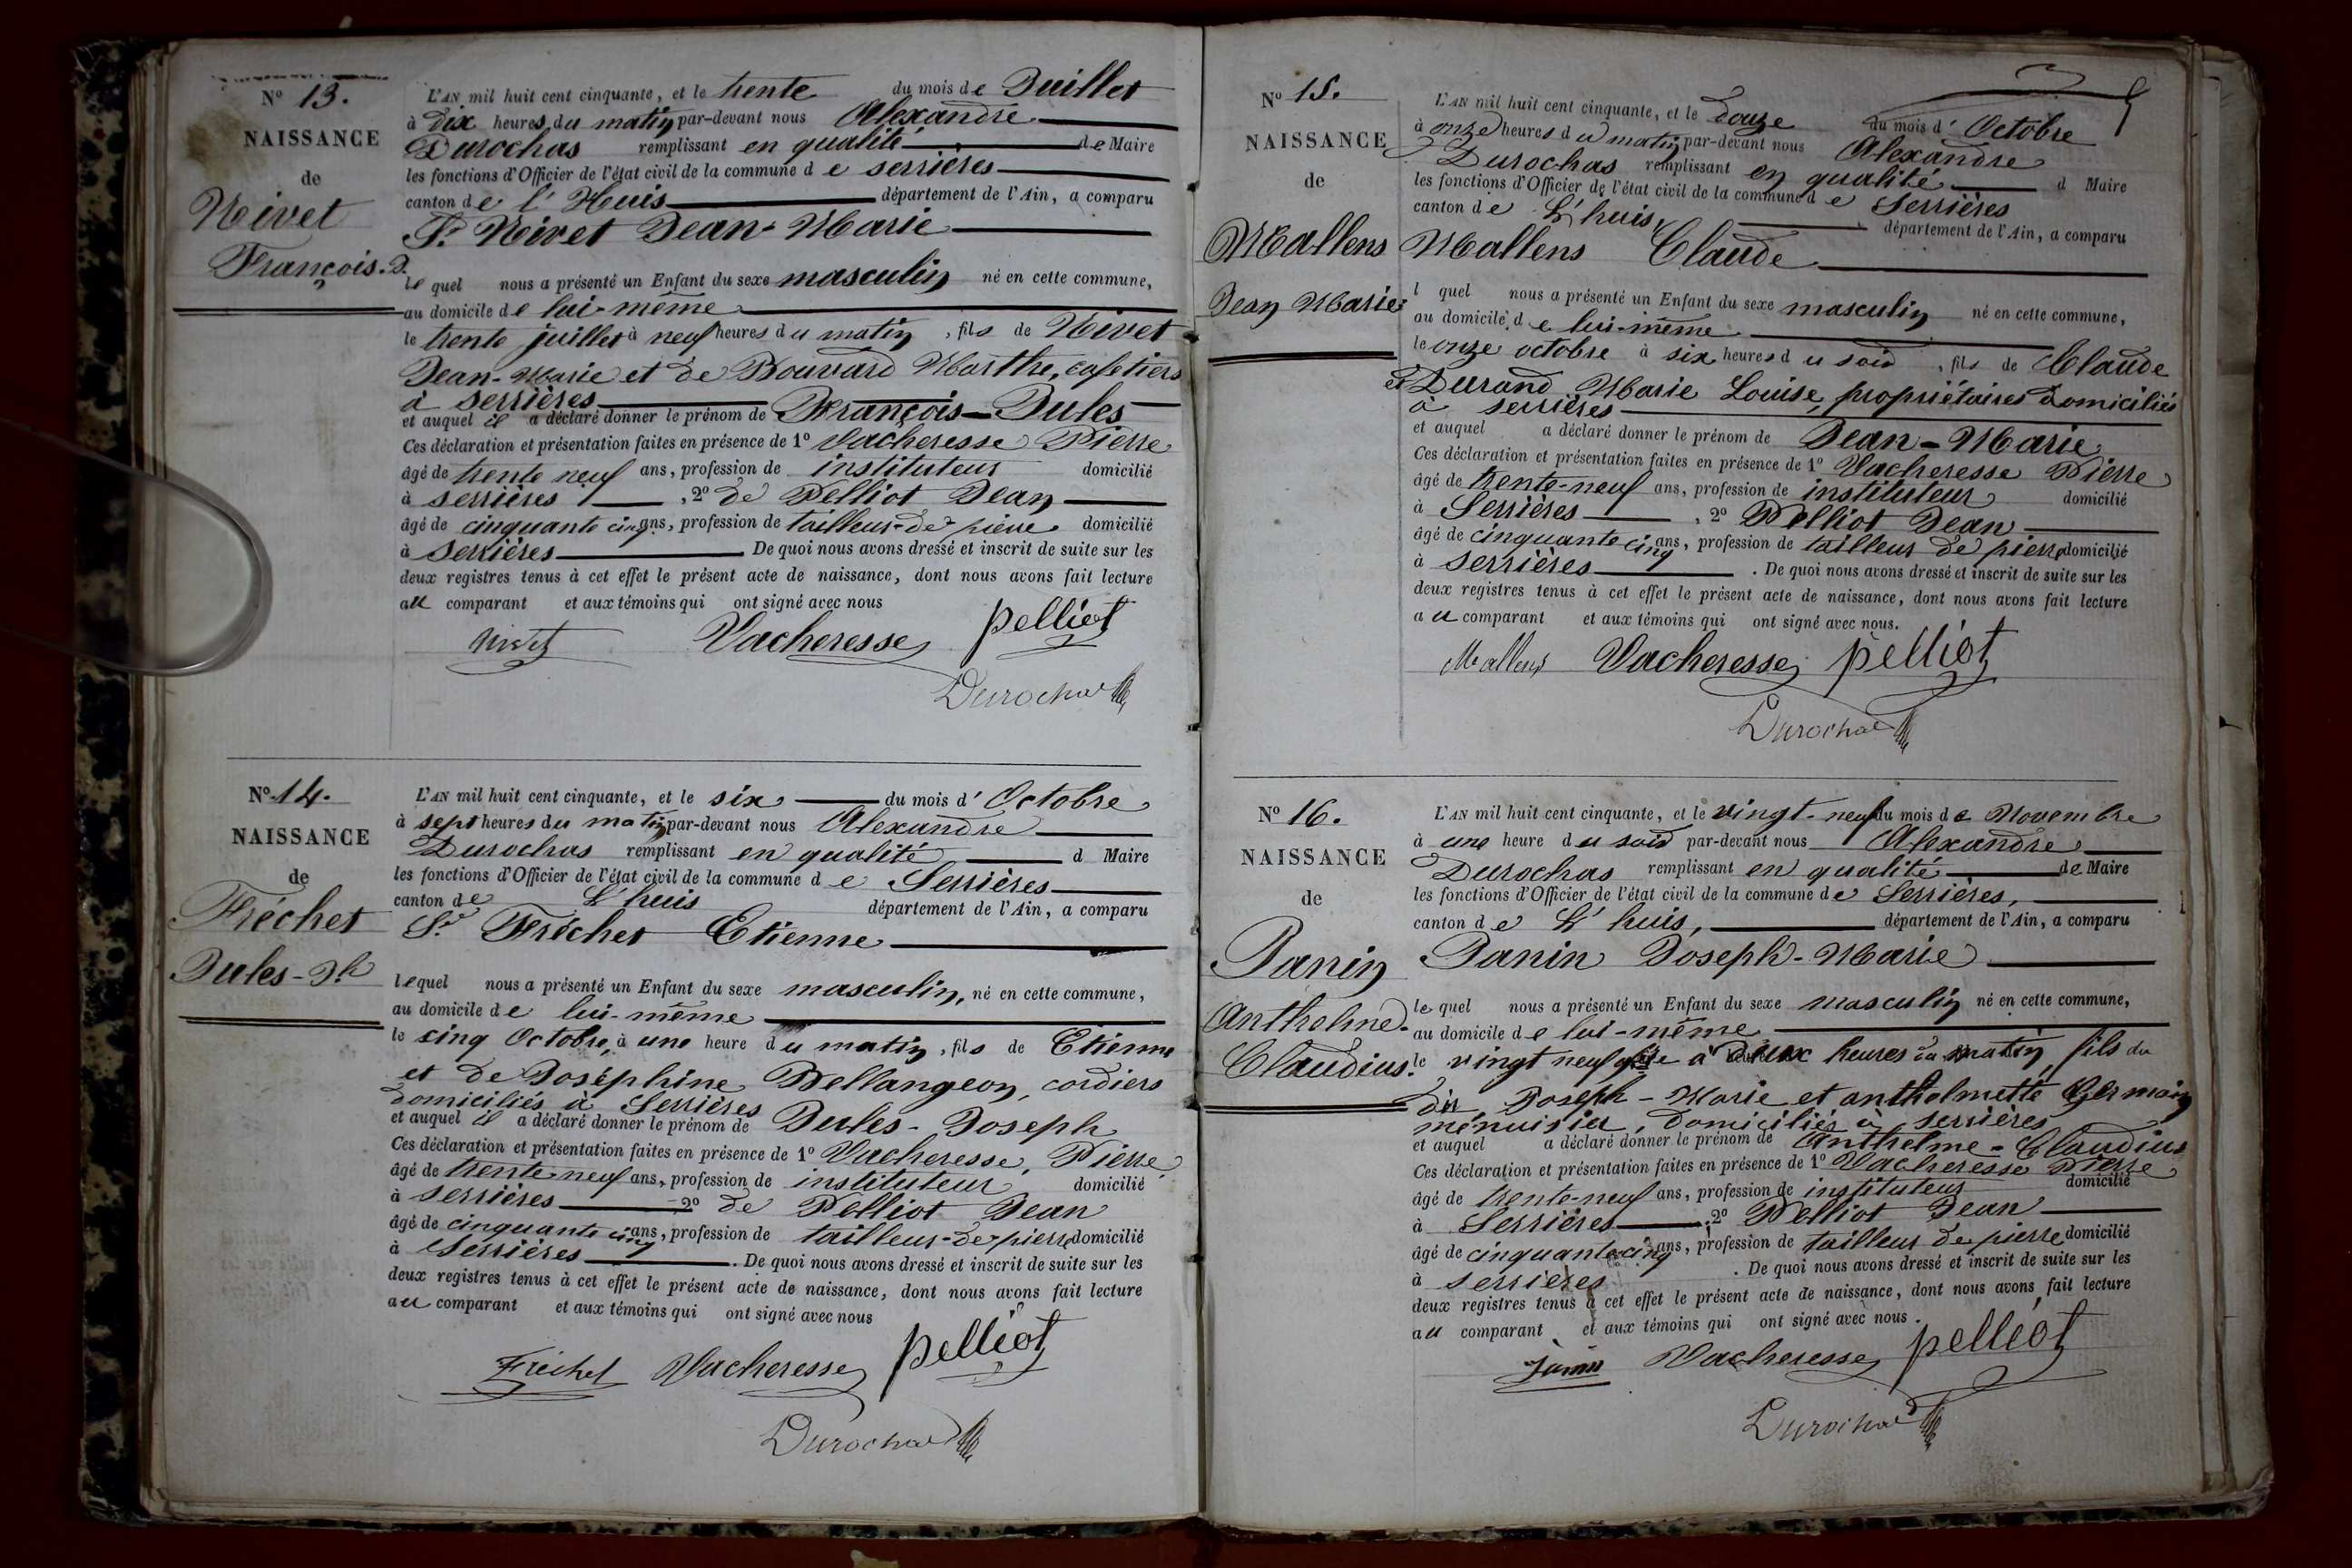 N° 13.
NAISSANCE
de
Nivet
François. J.
L'AN mil huit cent cinquante, et le trente du mois de Juillet
à Dix heures du matin par-devant nous Alexandre
Durochas remplissant en qualité de Maire
les fonctions d'Officier de l'état civil de la commune de serrières
canton de l'Huis département de l'Ain, a comparu
Sr. Nivet Jean-Marie
le quel nous a présenté un Enfant du sexe masculin né en cette commune,
au domicile de lui-même
le trente juillet à neuf heures du matin, fils de Nivet
Jean-Marie et de Bouvard Marthe, cafetiers
à serrières
et auquel il a déclaré donner le prénom de François-Jules
Ces déclaration et présentation faites en présence de 1° Vacheresse Pierre
âgé de trente neuf ans, profession de instituteur domicilié
à serrières, 2° de Pelliot Jean
âgé de cinquante cinq ans, profession de tailleur-de-pierre domicilié
à serrières De quoi nous avons dressé et inscrit de suite sur les
deux registres tenus à cet effet le présent acte de naissance, dont nous avons fait lecture
au comparant et aux témoins qui ont signé avec nous
Nivet Vacheresse pelliot
Durochat
N° 14.
NAISSANCE
de
Fréchet
Jules-Jh
L'AN mil huit cent cinquante, et le six du mois d'Octobre
à sept heures du matin par-devant nous Alexandre
Durochas remplissant en qualité d Maire
les fonctions d'Officier de l'état civil de la commune de Serrières
canton de L'huis département de l'Ain, a comparu
Sr. Fréchet Etienne
lequel nous a présenté un Enfant du sexe masculin, né en cette commune,
au domicile de lui-même
le cinq Octobre, à une heure du matin, fils de Etienne
et de Joséphine Bellangeon, cordiers
domiciliés à Serrières
et auquel il a déclaré donner le prénom de Jules-Joseph
Ces déclaration et présentation faites en présence de 1° Vacheresse, Pierre
âgé de trente-neuf ans, profession de instituteur domicilié
à serrières 2° de Pelliot Jean
âgé de cinquante cinq ans, profession de tailleur-de-pierre domicilié
à Serrières. De quoi nous avons dressé et inscrit de suite sur les
deux registres tenus à cet effet le présent acte de naissance, dont nous avons fait lecture
au comparant et aux témoins qui ont signé avec nous
Fréchet Vacheresse pelliot
Durochat
N° 15.
NAISSANCE
de
Mallens
Jean Marie
L'AN mil huit cent cinquante, et le Douze du mois d'Octobre
à onze heures du matin par-devant nous Alexandre
Durochas remplissant en qualité d Maire
les fonctions d'Officier de l'état civil de la commune de Serrières
canton de L'huis département de l'Ain, a comparu
Mallens Claude
l quel nous a présenté un Enfant du sexe masculin né en cette commune,
au domicile de lui-même
le onze octobre à six heures du soir, fils de Claude
et Durand Marie Louise, propriétaires domiciliés
à serrières
et auquel a déclaré donner le prénom de Jean-Marie
Ces déclaration et présentation faites en présence de 1° Vacheresse Pierre
âgé de trente-neuf ans, profession de instituteur domicilié
à Serrières, 2° Pelliot Jean
âgé de cinquante cinq ans, profession de tailleur de pierre domicilié
à serrières. De quoi nous avons dressé et inscrit de suite sur les
deux registres tenus à cet effet le présent acte de naissance, dont nous avons fait lecture
au comparant et aux témoins qui ont signé avec nous.
Mallens Vacheresse pelliot
Durochat
N° 16.
NAISSANCE
de
Janin
Anthelme-
Claudius.
L'AN mil huit cent cinquante, et le vingt-neuf du mois de Novembre
à une heure du soir par-devant nous Alexandre
Durochas remplissant en qualité de Maire
les fonctions d'Officier de l'état civil de la commune de Serrières,
canton de L'huis, département de l'Ain, a comparu
Janin Joseph-Marie
le quel nous a présenté un Enfant du sexe masculin né en cette commune,
au domicile de lui-même
le vingt neuf à Deux heures du matin, fils du
dit, Joseph-Marie et anthelmette Germain
menuisier, domiciliés à serrières
et auquel a déclaré donner le prénom de Anthelme-Claudius
Ces déclaration et présentation faites en présence de 1° Vacheresse Pierre
âgé de trente-neuf ans, profession de instituteur domicilié
à Serrières, 2° Pelliot Jean
âgé de cinquante cinq ans, profession de tailleur de pierre domicilié
à serrières. De quoi nous avons dressé et inscrit de suite sur les
deux registres tenus à cet effet le présent acte de naissance, dont nous avons fait lecture
au comparant et aux témoins qui ont signé avec nous.
Janin Vacheresse pelliot
Durochat